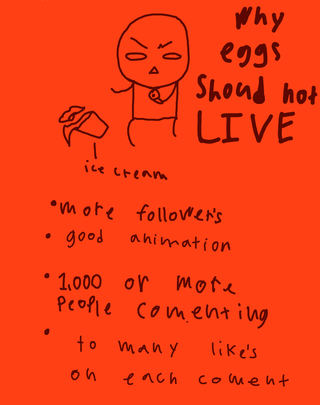 Why
eggs
Shoud not
LIVE
ice cream
• more follower's
• good animation
• 1,000 or more
People comenting
• to many like's
on each coment